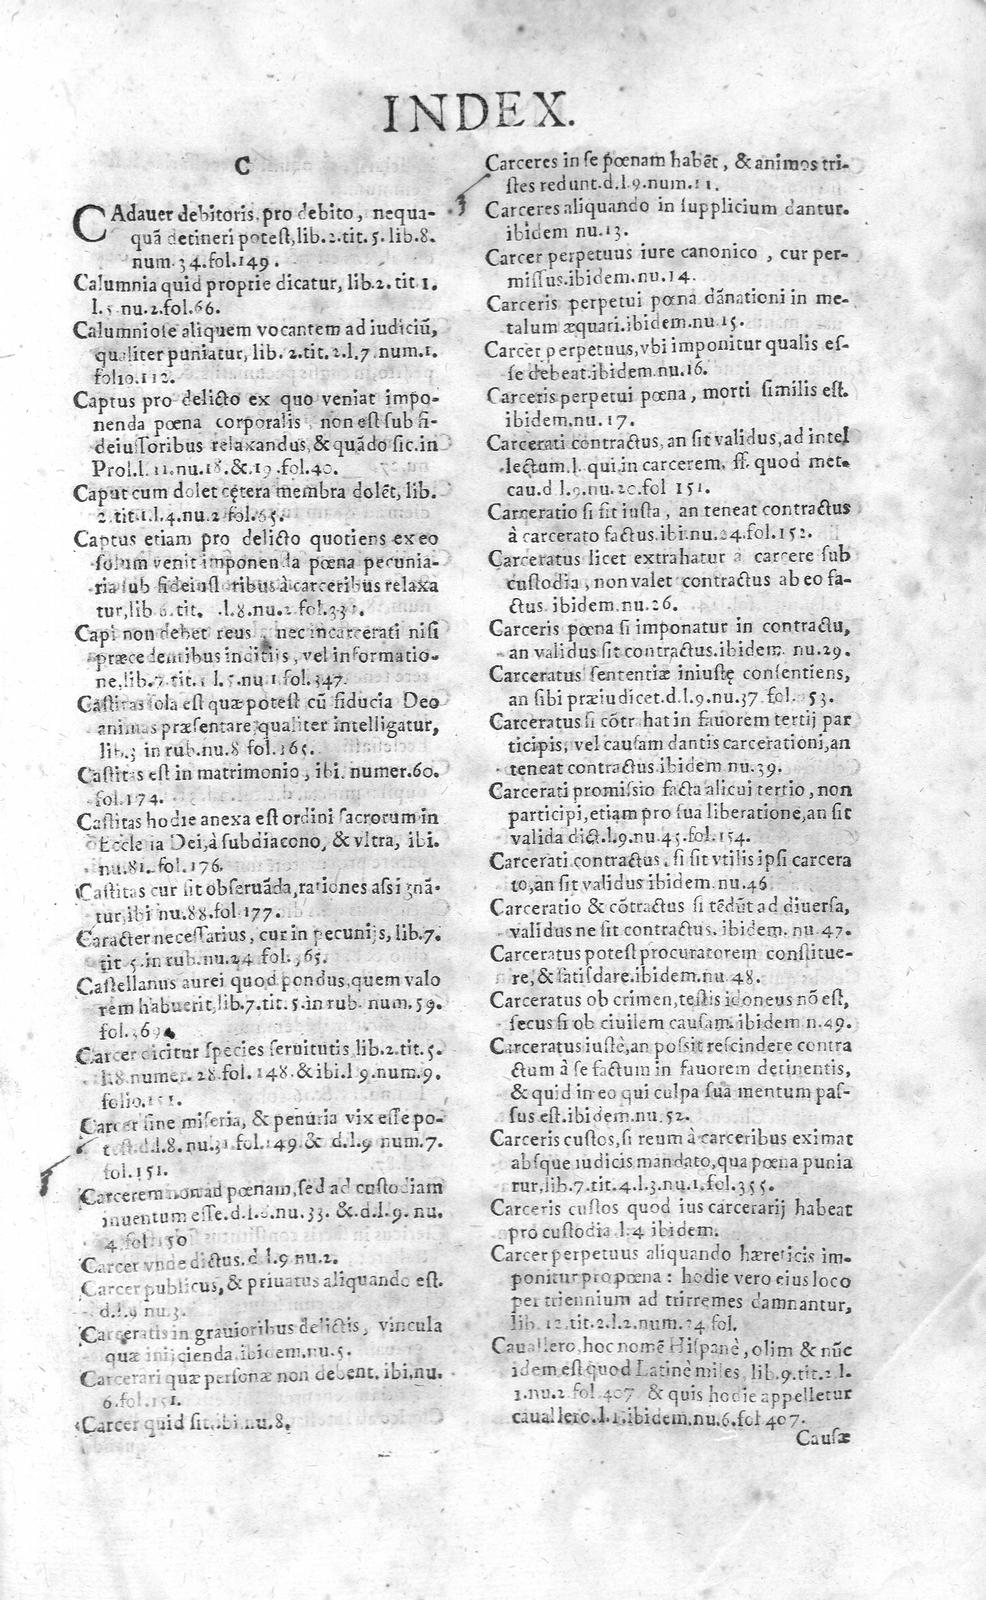 INDEX.
C
CAdauer debitoris, pro debito, nequa-
quã detineri potest, lib.2.tit.5.lib.8.
num.34.fol.149.
Calumnia quid proprie dicatur, lib.2.tit.1.
l.5.nu.2.fol.66.
Calumniose aliquem vocantem ad iudiciũ,
qualiter puniatur, lib.2.tit.2.l.7.num.1.
folio.112.
Captus pro delicto ex quo veniat impo-
nenda pœna corporalis, non est sub fi-
deiussoribus relaxandus, & quãdo sic. in
Prol.l.11.nu.18.&.19.fol.40.
Caput cum dolet cętera membra dolẽt, lib.
2.tit.1.l.4.nu.2.fol.65.
Captus etiam pro delicto quotiens ex eo
solum venit imponenda pœna pecunia-
ria sub fideiussoribus à carceribus relaxa
tur, lib 6.tit. l.8.nu.2.fol.331.
Capi non debet reus, nec incarcerati nisi
præcedentibus inditijs, vel informatio-
ne, lib.7.tit.1 l.5.nu.1 fol.347.
Castitas sola est quæ potest cũ fiducia Deo
animas præsentare, qualiter intelligatur,
lib.3 in rub.nu.8 fol.165.
Castitas est in matrimonio, ibi. numer.60.
fol.174.
Castitas hodie anexa est ordini sacrorum in
Ecclesia Dei, à subdiacono, & vltra, ibi.
nu.81. fol.176.
Castitas cur sit obseruãda, rationes assignã-
tur, ibi nu.88.fol.177.
Caracter necessarius, cur in pecunijs, lib.7.
tit 5.in rub.nu.24 fol.365.
Castellanus aurei quod pondus, quem valo
rem habuerit, lib.7.tit.5.in rub num.59.
fol.369.
Carcer dicitur species seruitutis, lib.2.tit.5.
l.8 numer.28 fol.148.& ibi.l 9.num.9.
folio.151.
Carcer sine miseria, & penuria vix esse po-
test.d.l.8.nu.31.fol.149 & d.l.9 num.7.
fol.151.
Carcerem non ad pœnam, sed ad custodiam
inuentum esse.d.l.8.nu.33.&.d.l.9.nu.
4.fol.150
Carcer vnde dictus.d l.9 nu.2.
Carcer publicus, & priuatus aliquando est.
d.l.9 nu.3.
Carceratis in grauioribus delictis, vincula
quæ inijcienda.ibidem.nu.5.
Carcerari quæ personæ non debent. ibi.nu.
6.fol.151.
Carcer quid sit, ibi.nu.8.
Carceres in se pœnam habẽt, & animos tri-
stes redunt.d.l.9.num.11.
Carceres aliquando in supplicium dantur.
ibidem nu.13.
Carcer perpetuus iure canonico, cur per-
missus.ibidem.nu.14.
Carceris perpetui pœna dãnationi in me-
talum æquari.ibidem.nu.15.
Carcer perpetuus, vbi imponitur qualis es-
se debeat.ibidem.nu.16.
Carceris perpetui pœna, morti similis est.
ibidem.nu.17.
Carcerati contractus, an sit validus, ad intel
lectum.l. qui in carcerem. ff. quod met.
cau.d l.9.nu.20.fol 151.
Carceratio si sit iusta, an teneat contractus
à carcerato factus.ibi.nu.24.fol.152.
Carceratus licet extrahatur à carcere sub
custodia, non valet contractus ab eo fa-
ctus. ibidem.nu.26.
Carceris pœna si imponatur in contractu,
an validus sit contractus.ibidem. nu.29.
Carceratus sententiæ iniustę consentiens,
an sibi præiudicet.d.l.9.nu.37 fol.153.
Carceratus si cõtrahat in fauorem tertij par
ticipis, vel causam dantis carcerationi, an
teneat contractus.ibidem nu.39.
Carcerati promissio facta alicui tertio, non
participi, etiam pro sua liberatione, an sit
valida dict.l.9.nu 45.fol.154.
Carcerati contractus, si sit vtilis ipsi carcera
to, an sit validus ibidem.nu.46
Carceratio & cõtractus si tẽdũt ad diuersa,
validus ne sit contractus. ibidem. nu 47.
Carceratus potest procuratorem constitue-
re, & satisdare.ibidem.nu 48.
Carceratus ob crimen, testis idoneus nõ est,
secus si ob ciuilem causam. ibidem n.49.
Carceratus iustè, an possit rescindere contra
ctum à se factum in fauorem detinentis,
& quid in eo qui culpa sua mentum pas-
sus est.ibidem.nu.52.
Carceris custos, si reum à carceribus eximat
absque iudicis mandato, qua pœna punia
tur, lib.7.tit.4.l.3.nu.1.fol.355.
Carceris custos quod ius carcerarij habeat
pro custodia.l.4 ibidem.
Carcer perpetuus aliquando hæreticis im-
ponitur pro pœna: hodie vero eius loco
per triennium ad trirremes damnantur,
lib.12.tit.2.l.2.num.24 fol.
Cauallero, hoc nomẽ Hispanè, olim & nũc
idem est quod Latinè miles, lib.9.tit.2.l.
1.nu.2 fol 407 & quis hodie appelletur
cauallero.l.1.ibidem.nu.6.fol 407.
Causæ